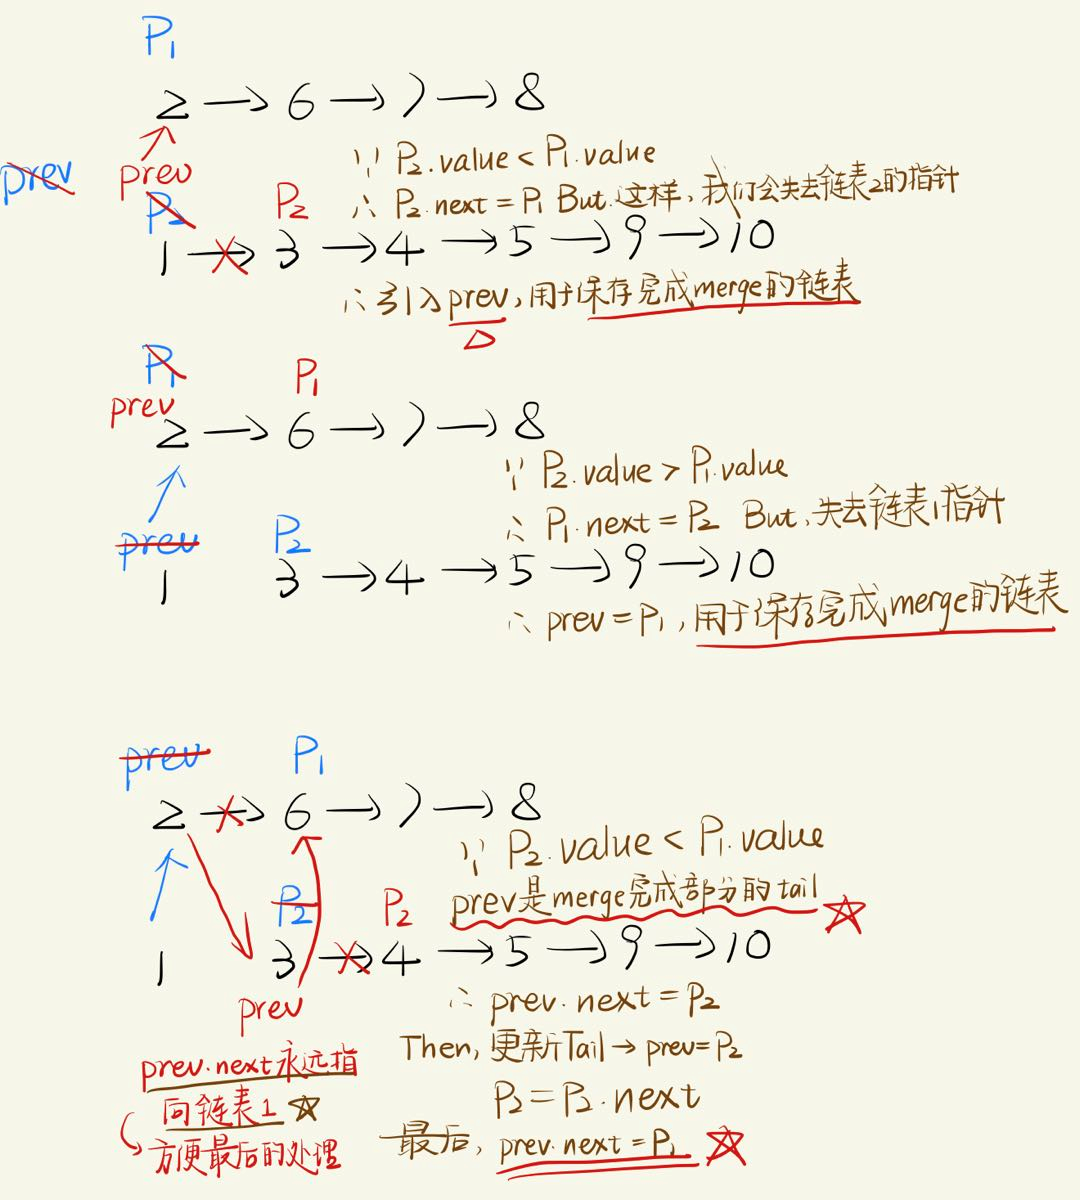 P1
2 → 6 → 7 → 8
prev prev
∵ P2.value < P1.value
P2 P2
∴ P2.next = P1 But 这样，我们会失去链表2的指针
1 → 3 → 4 → 5 → 9 → 10
∴ 引入prev，用于保存完成merge的链表
P1 P1
prev
2 → 6 → 7 → 8
∵ P2.value > P1.value
∴ P1.next = P2 But，失去链表1指针
prev P2
1 3 → 4 → 5 → 9 → 10
∴ prev = P1，用于保存完成merge的链表
prev P1
2 → 6 → 7 → 8
∵ P2.value < P1.value
prev是merge完成部分的tail ☆
P2 P2
1 3 → 4 → 5 → 9 → 10
prev
∴ prev.next = P2
Then, 更新Tail → prev=P2
P2 = P2.next
最后，prev.next = P1 ☆
prev.next永远指
向链表1 ☆
方便最后的处理